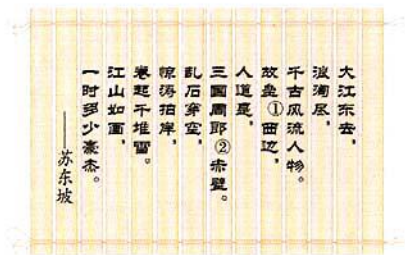 大江东去，
浪淘尽，
千古风流人物。
故垒①西边，
人道是，
三国周郎②赤壁。
乱石穿空，
惊涛拍岸，
卷起千堆雪。
江山如画，
一时多少豪杰。
——苏东坡